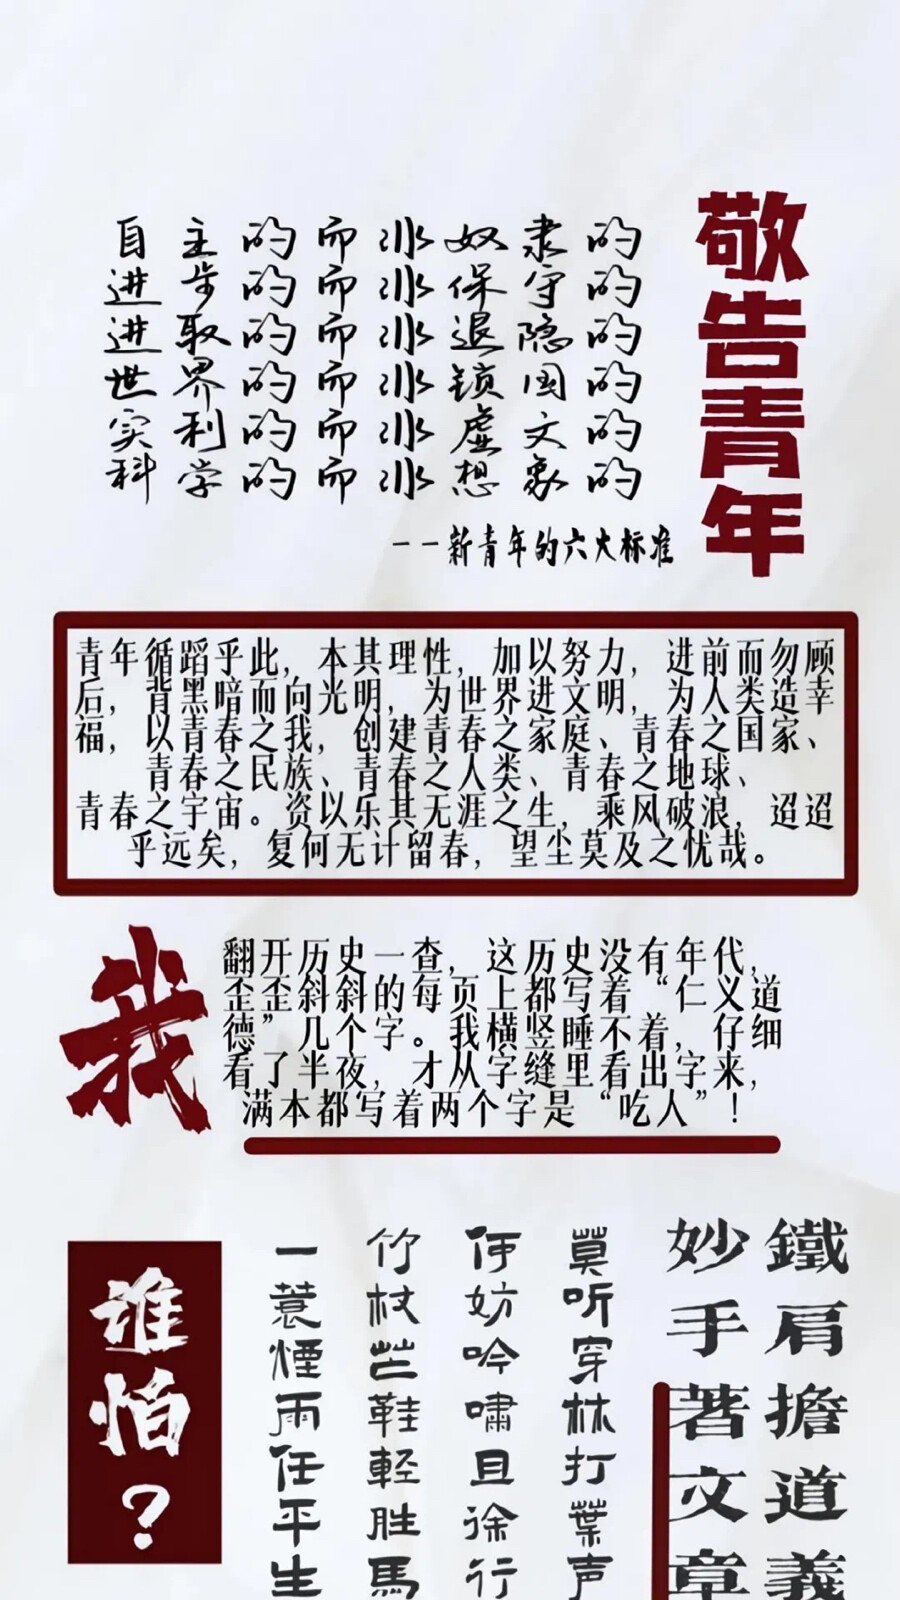 敬告青年
自主的而非奴隶的
进步的而非保守的
进取的而非退隐的
世界的而非锁国的
实利的而非虚文的
科学的而非想象的
--新青年的六大标准
青年循蹈乎此，本其理性，加以努力，进前而勿顾
后，背黑暗而向光明，为世界进文明，为人类造幸
福，以青春之我，创建青春之家庭、青春之国家、
青春之民族、青春之人类、青春之地球、
青春之宇宙。资以乐其无涯之生，乘风破浪，迢迢
乎远矣，复何无计留春，望尘莫及之忧哉。
我
翻开历史一查，这历史没有年代，
歪歪斜斜的每页上都写着“仁义道
德”几个字。我横竖睡不着，仔细
看了半夜，才从字缝里看出字来，
满本都写着两个字是“吃人”！
鐵肩擔道義
妙手著文章
莫听穿林打葉声
何妨吟嘯且徐行
竹杖芒鞋輕勝馬
谁怕？
一蓑煙雨任平生